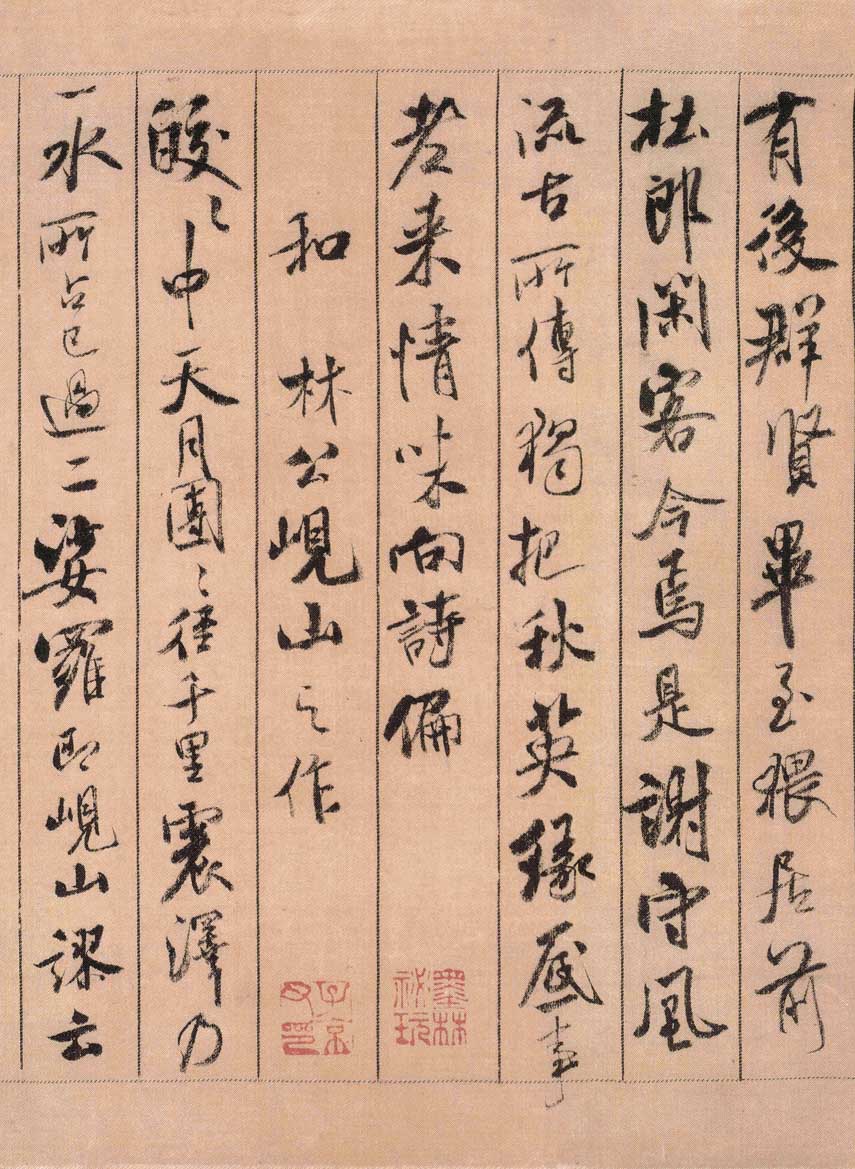 有後群賢畢至猥居前
杜郎閑客今焉是謝守風
流古所傳獨把秋英緣底事
老来情味向詩偏
墨林祕玩
和林公峴山之作
子京父印
皎々中天月團々徑千里震澤乃
一水所占已過二娑羅即峴山謬云